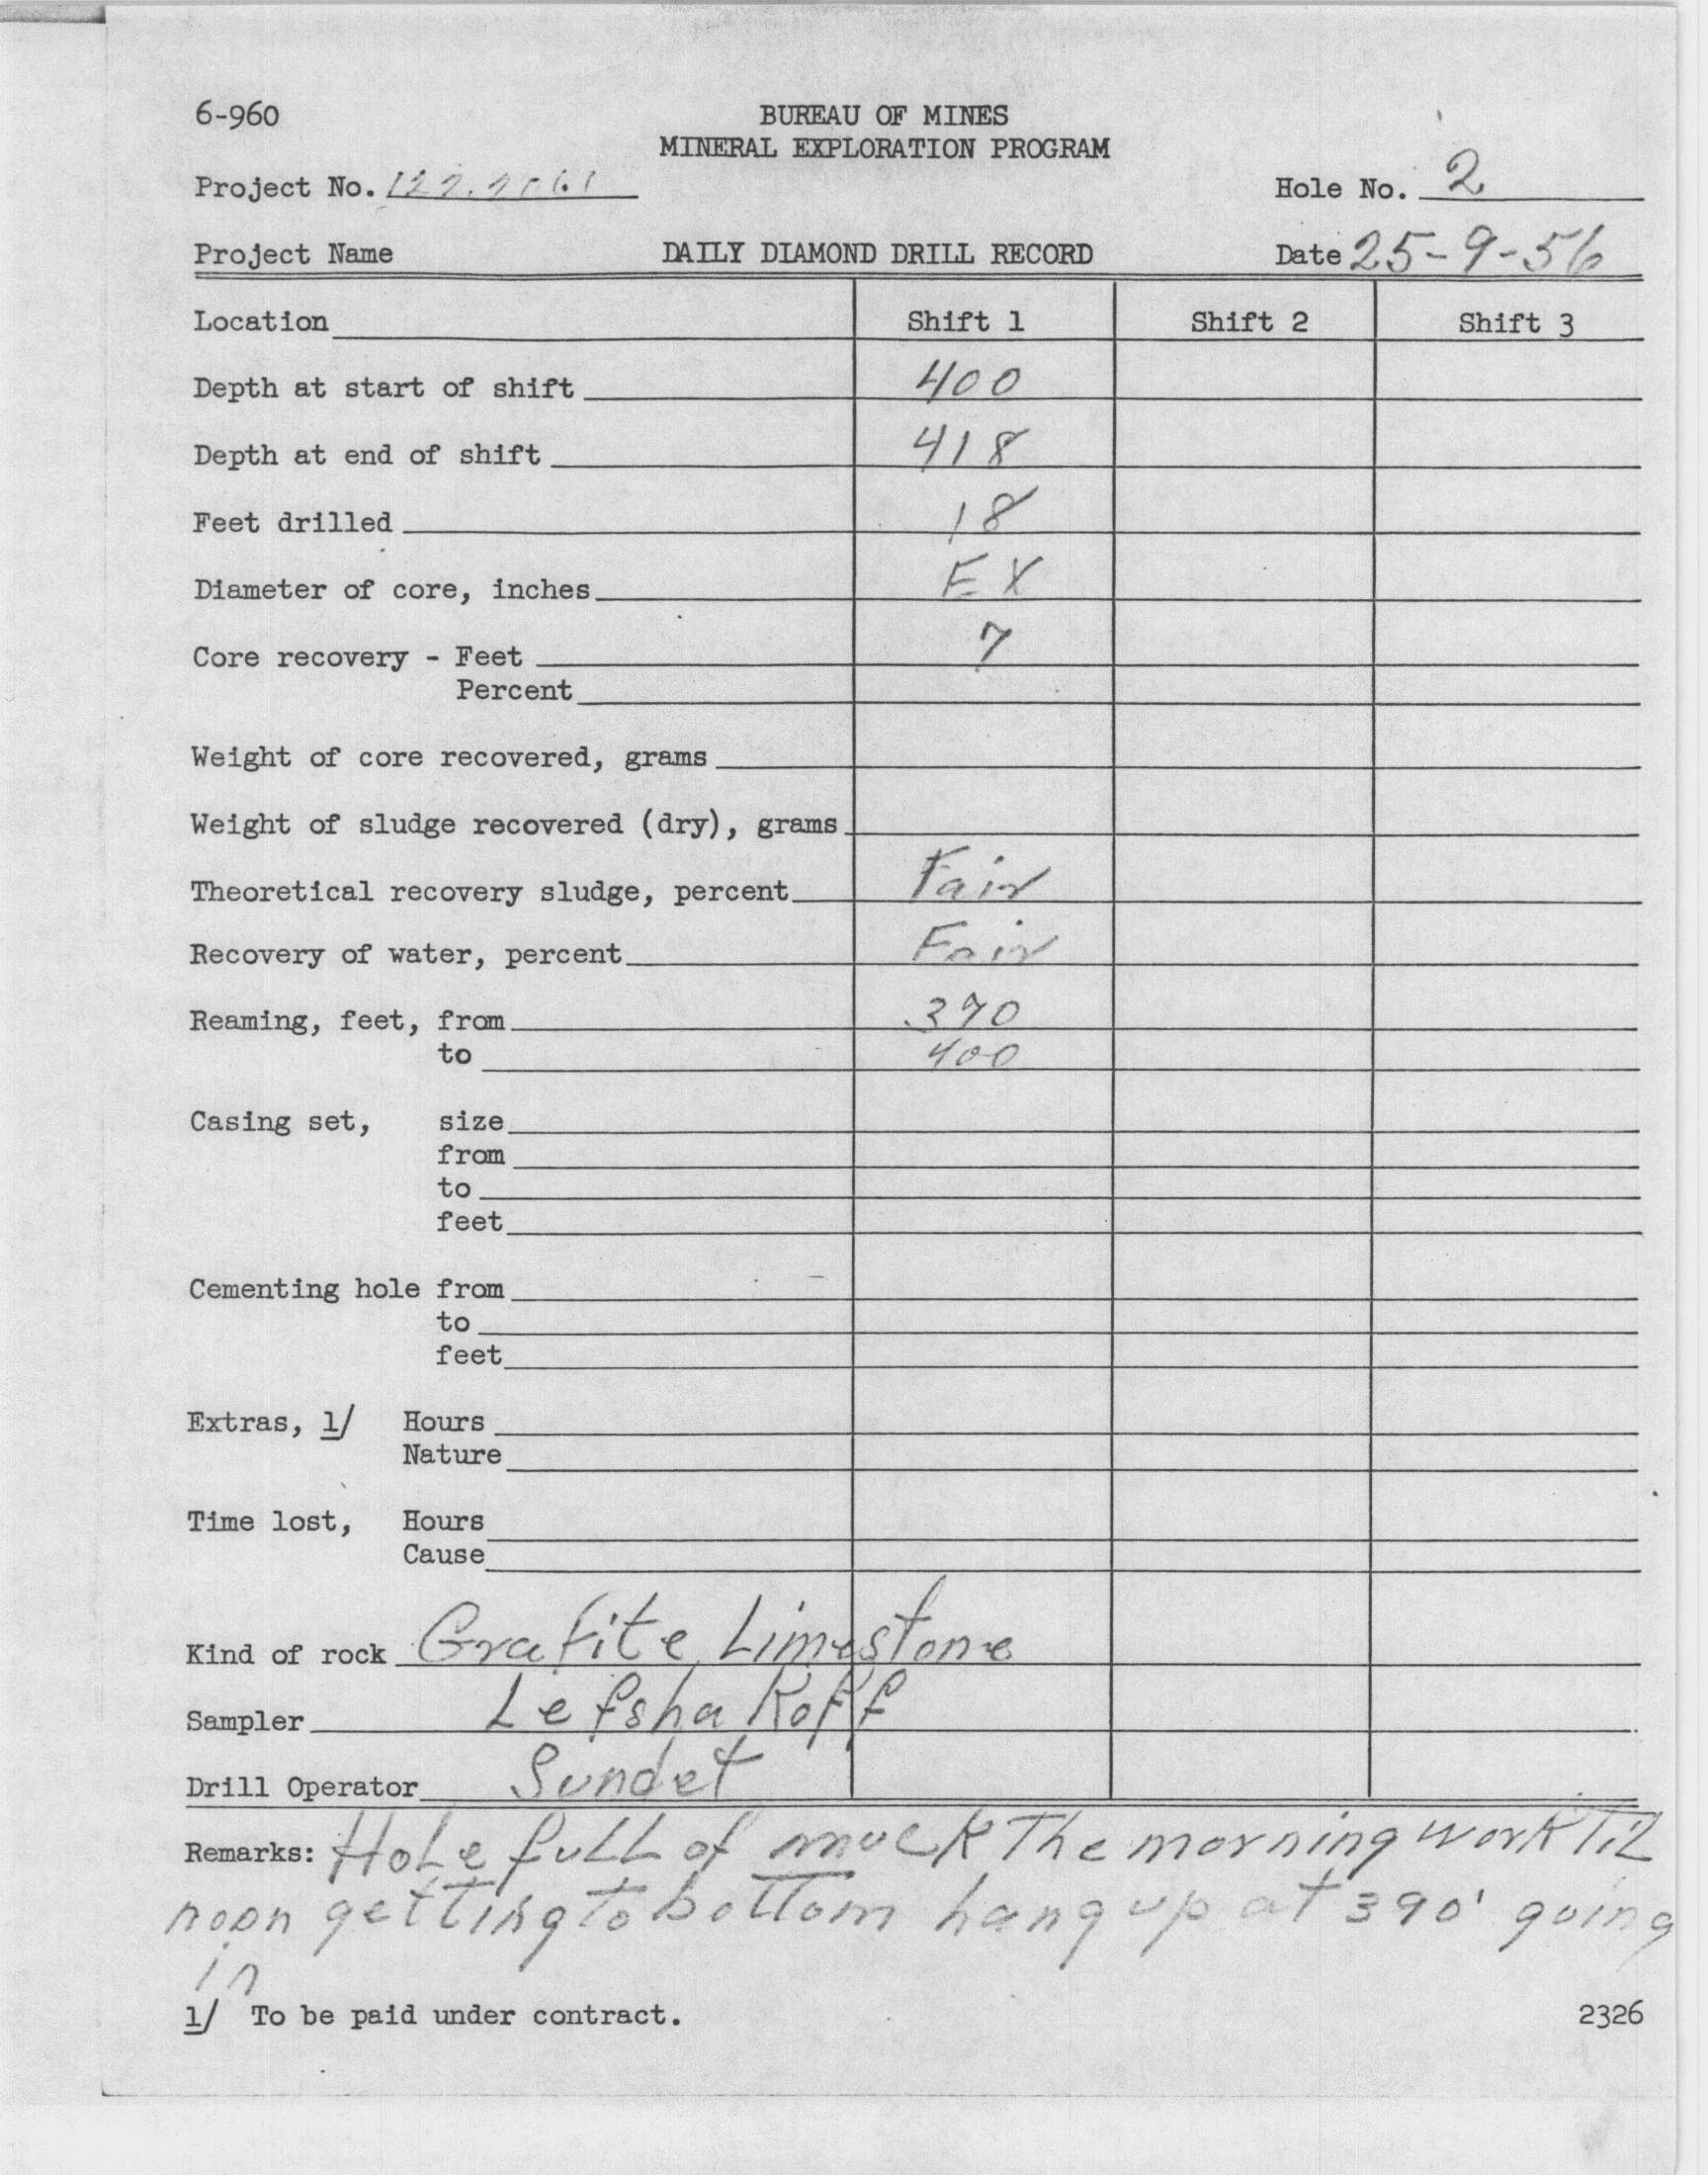 6-960
BUREAU OF MINES
MINERAL EXPLORATION PROGRAM
Project No.
Hole No. 2
Project Name DAILY DIAMOND DRILL RECORD Date 25-9-56
Location Shift 1 Shift 2 Shift 3
Depth at start of shift 400
Depth at end of shift 418
Feet drilled 18
Diameter of core, inches EX
Core recovery - Feet 7
Percent
Weight of core recovered, grams
Weight of sludge recovered (dry), grams
Theoretical recovery sludge, percent Fair
Recovery of water, percent Fair
Reaming, feet, from 390
to 400
Casing set, size
from
to
feet
Cementing hole from
to
feet
Extras, 1/ Hours
Nature
Time lost, Hours
Cause
Kind of rock Grafite Limestone
Sampler Lefshakoff
Drill Operator Sundet
Remarks: Hole full of muck The morning work Til
noon getting to bottom hang up at 390' going
in
1/ To be paid under contract.
2326